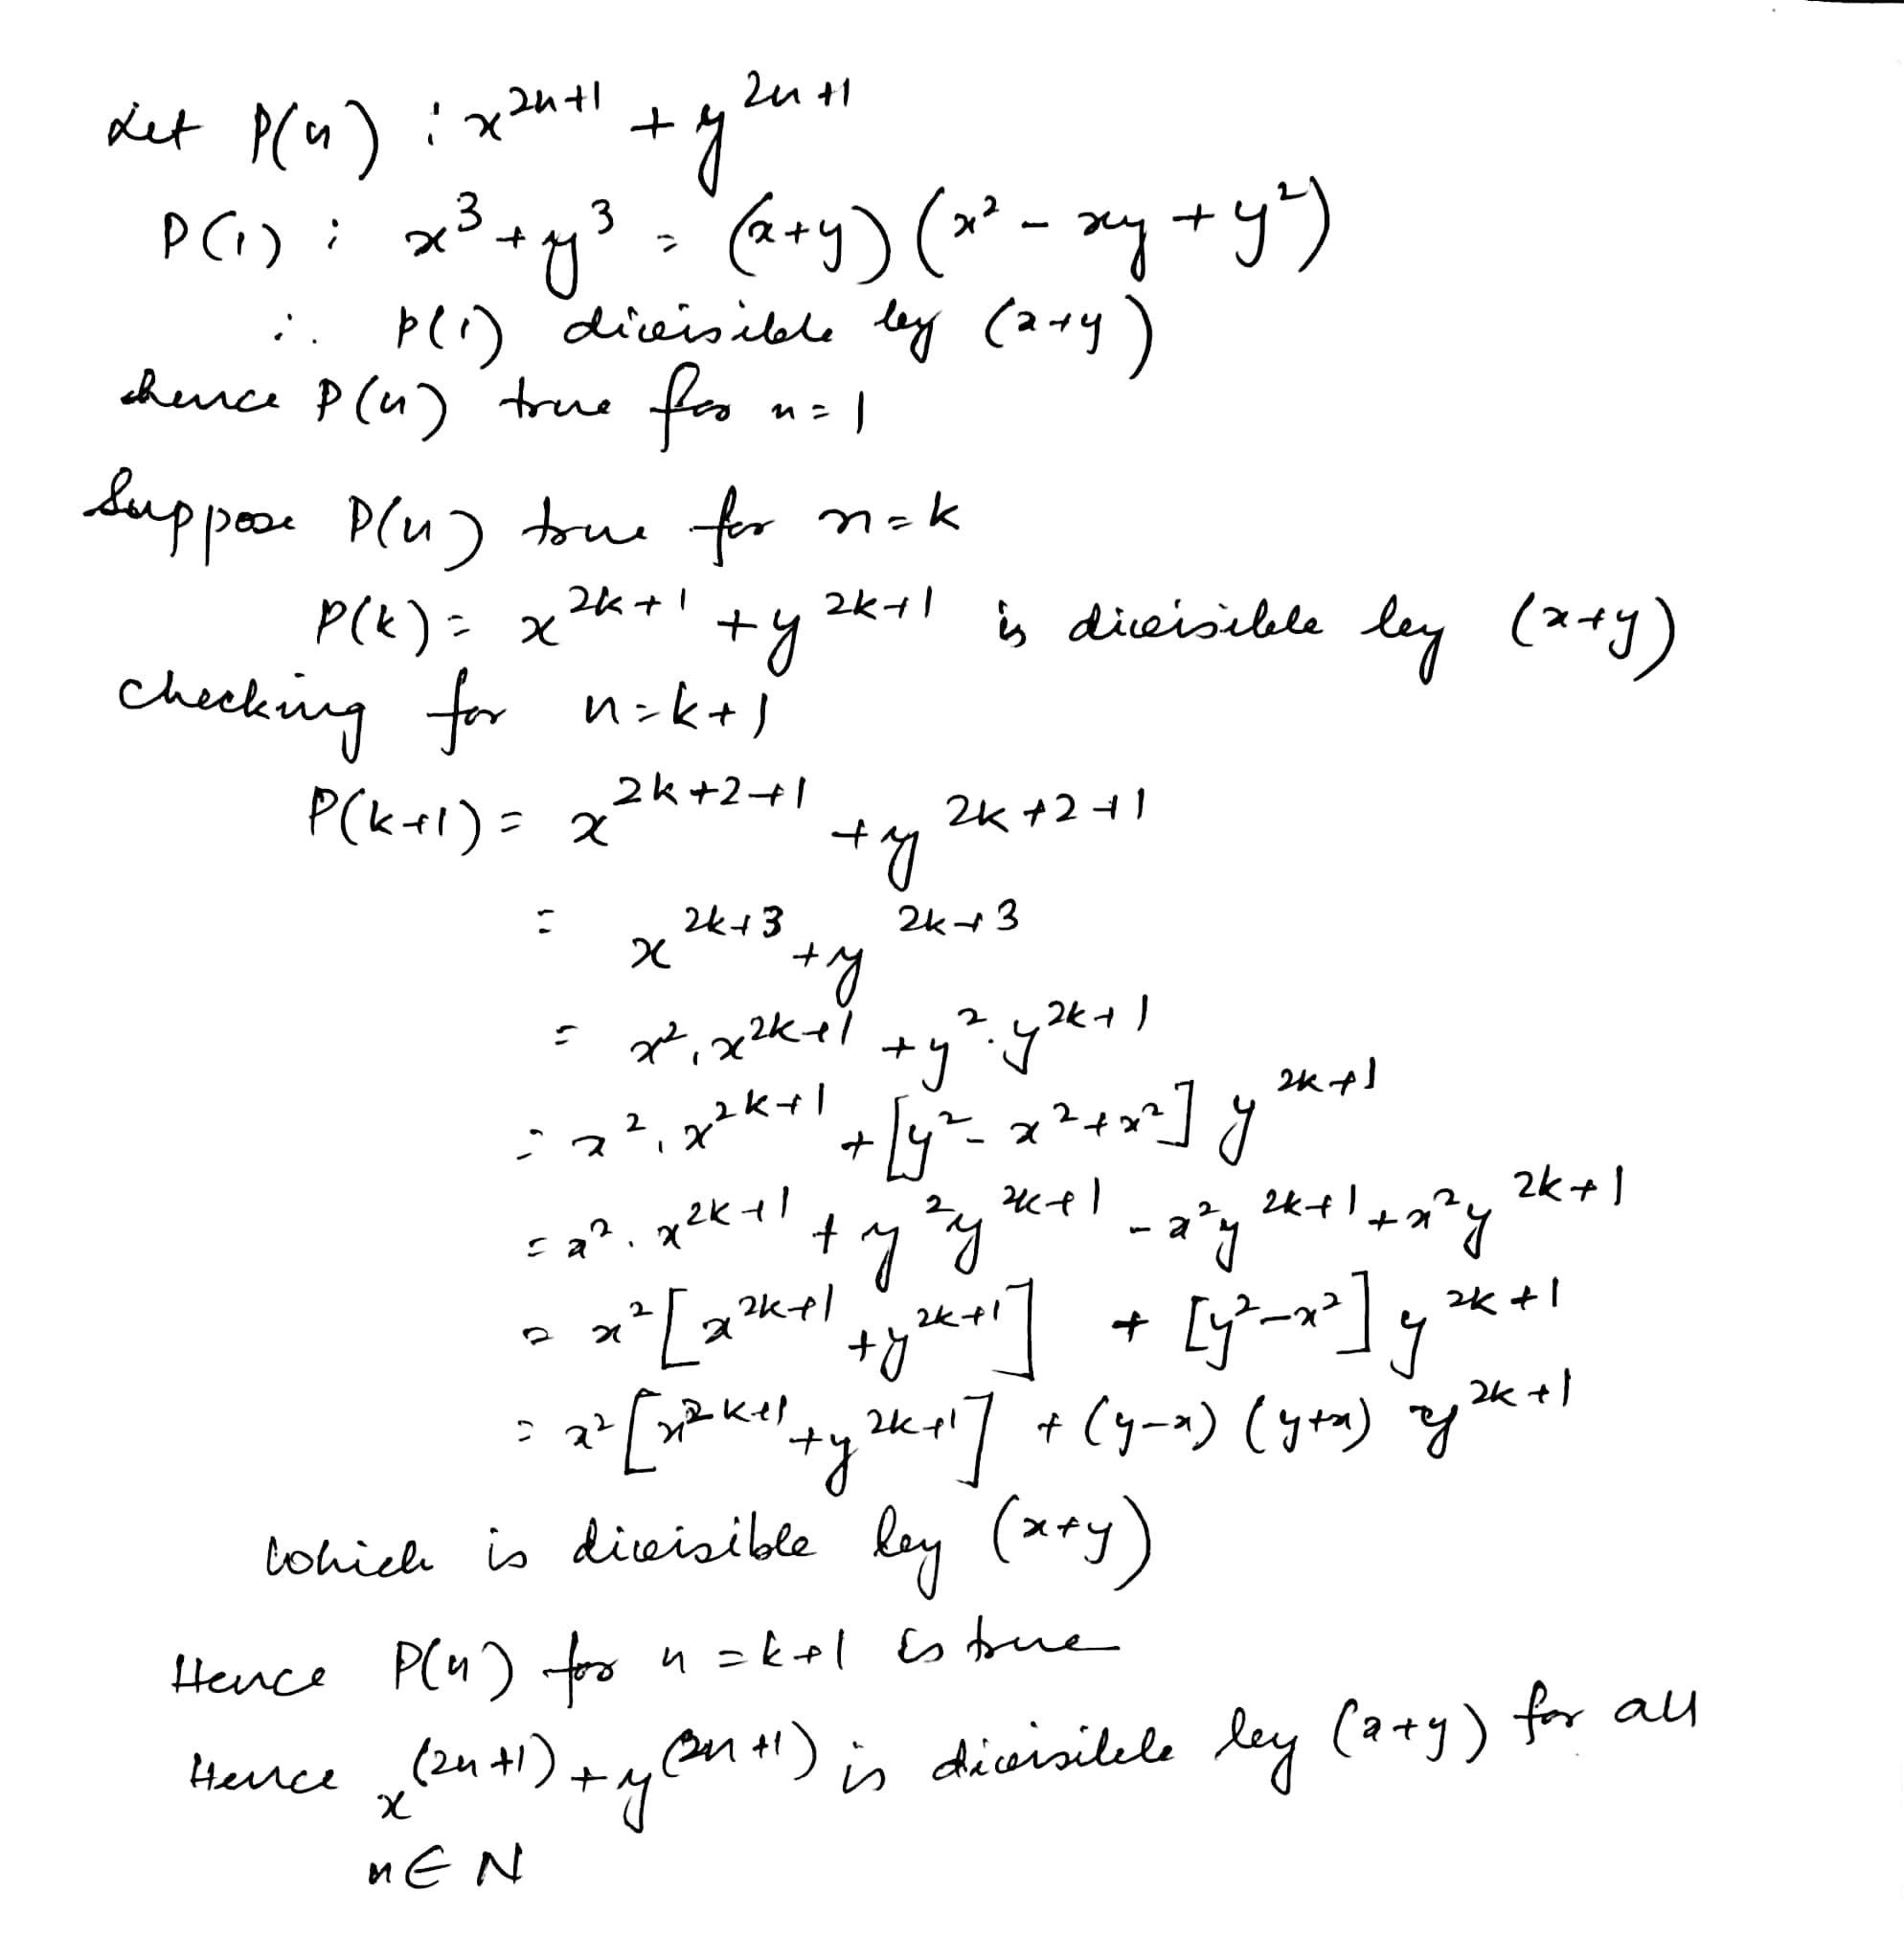 Let P(n) : x^{2n+1} + y^{2n+1}
P(1) : x^3 + y^3 = (x+y) (x^2 - xy + y^2)
∴ P(1) divisible by (x+y)
hence P(n) true for n=1
Suppose P(n) true for n=k
P(k) = x^{2k+1} + y^{2k+1} is divisible by (x+y)
Checking for n=k+1
P(k+1) = x^{2k+2+1} + y^{2k+2+1}
= x^{2k+3} + y^{2k+3}
= x^2 . x^{2k+1} + y^2 . y^{2k+1}
= x^2 . x^{2k+1} + [y^2 - x^2 + x^2] y^{2k+1}
= x^2 . x^{2k+1} + y^2 y^{2k+1} - x^2 y^{2k+1} + x^2 y^{2k+1}
= x^2 [x^{2k+1} + y^{2k+1}] + [y^2 - x^2] y^{2k+1}
= x^2 [x^{2k+1} + y^{2k+1}] + (y-x) (y+x) y^{2k+1}
Which is divisible by (x+y)
Hence P(n) for n = k+1 is true
Hence x^{(2n+1)} + y^{(2n+1)} is divisible by (x+y) for all
n ∈ N